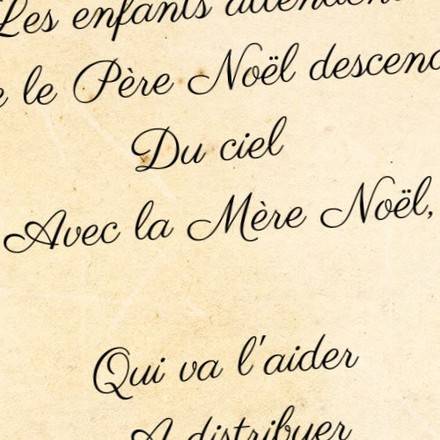 Les enfants attendent
le Père Noël descend
Du ciel
Avec la Mère Noël,
Qui va l'aider
A distribuer